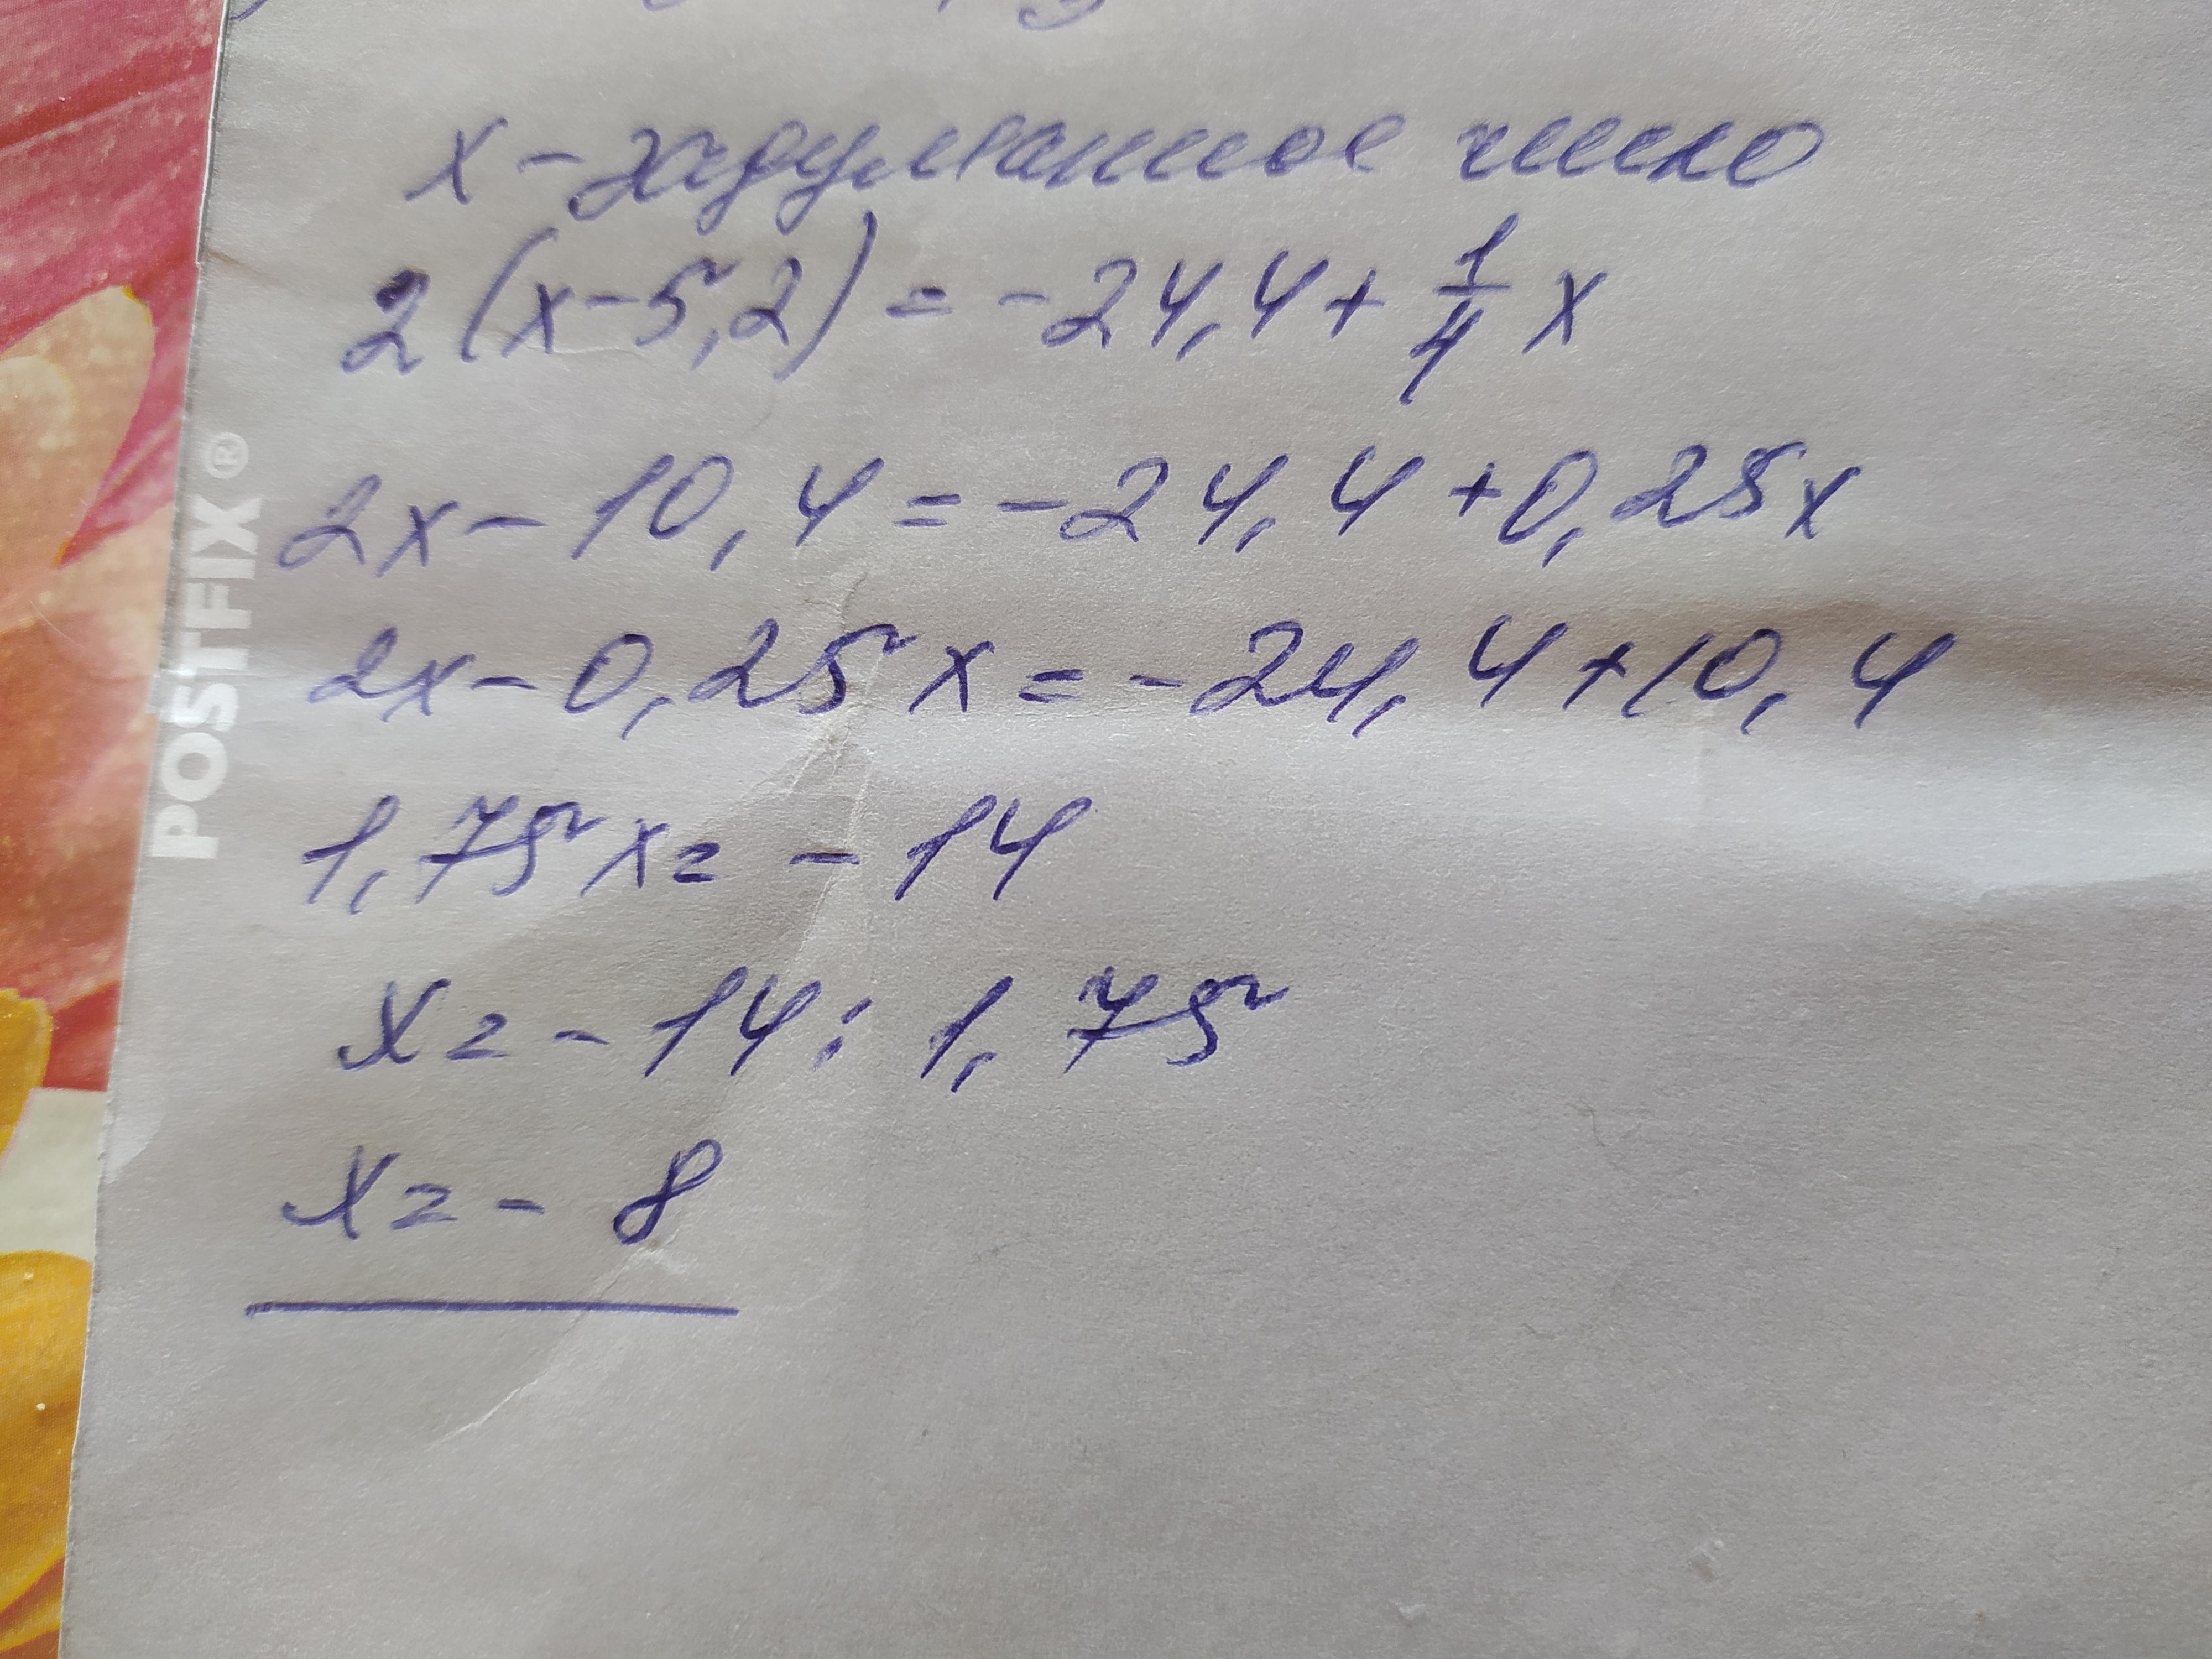 x - задуманное число
2(x-5,2) = -24,4 + 1/4 x
2x - 10,4 = -24,4 + 0,25x
2x - 0,25x = -24,4 + 10,4
1,75x = -14
x = -14 : 1,75
x = -8
POSTFIX®